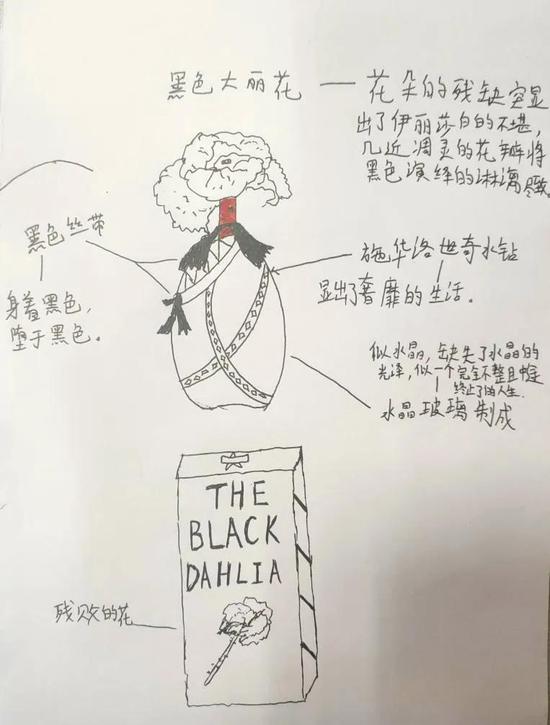 黑色大丽花 — 花朵的残缺突显
出了伊丽莎白的不堪,
几近凋灵的花瓣将
黑色演绎的淋漓尽致。
黑色丝带
身着黑色,
堕于黑色。
施华洛世奇水钻
显出了奢靡的生活。
似水晶,缺失了水晶的
光泽,似一个完全不整且
终止了的人生.
水晶玻璃制成
THE
BLACK
DAHLIA
残败的花